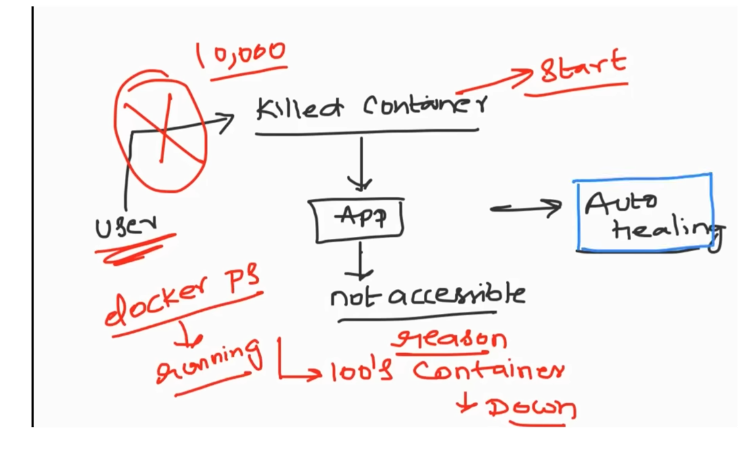 10,000
Killed Container
Start
User
App
Auto
Healing
not accessible
docker PS
running
reason
100's Container
Down